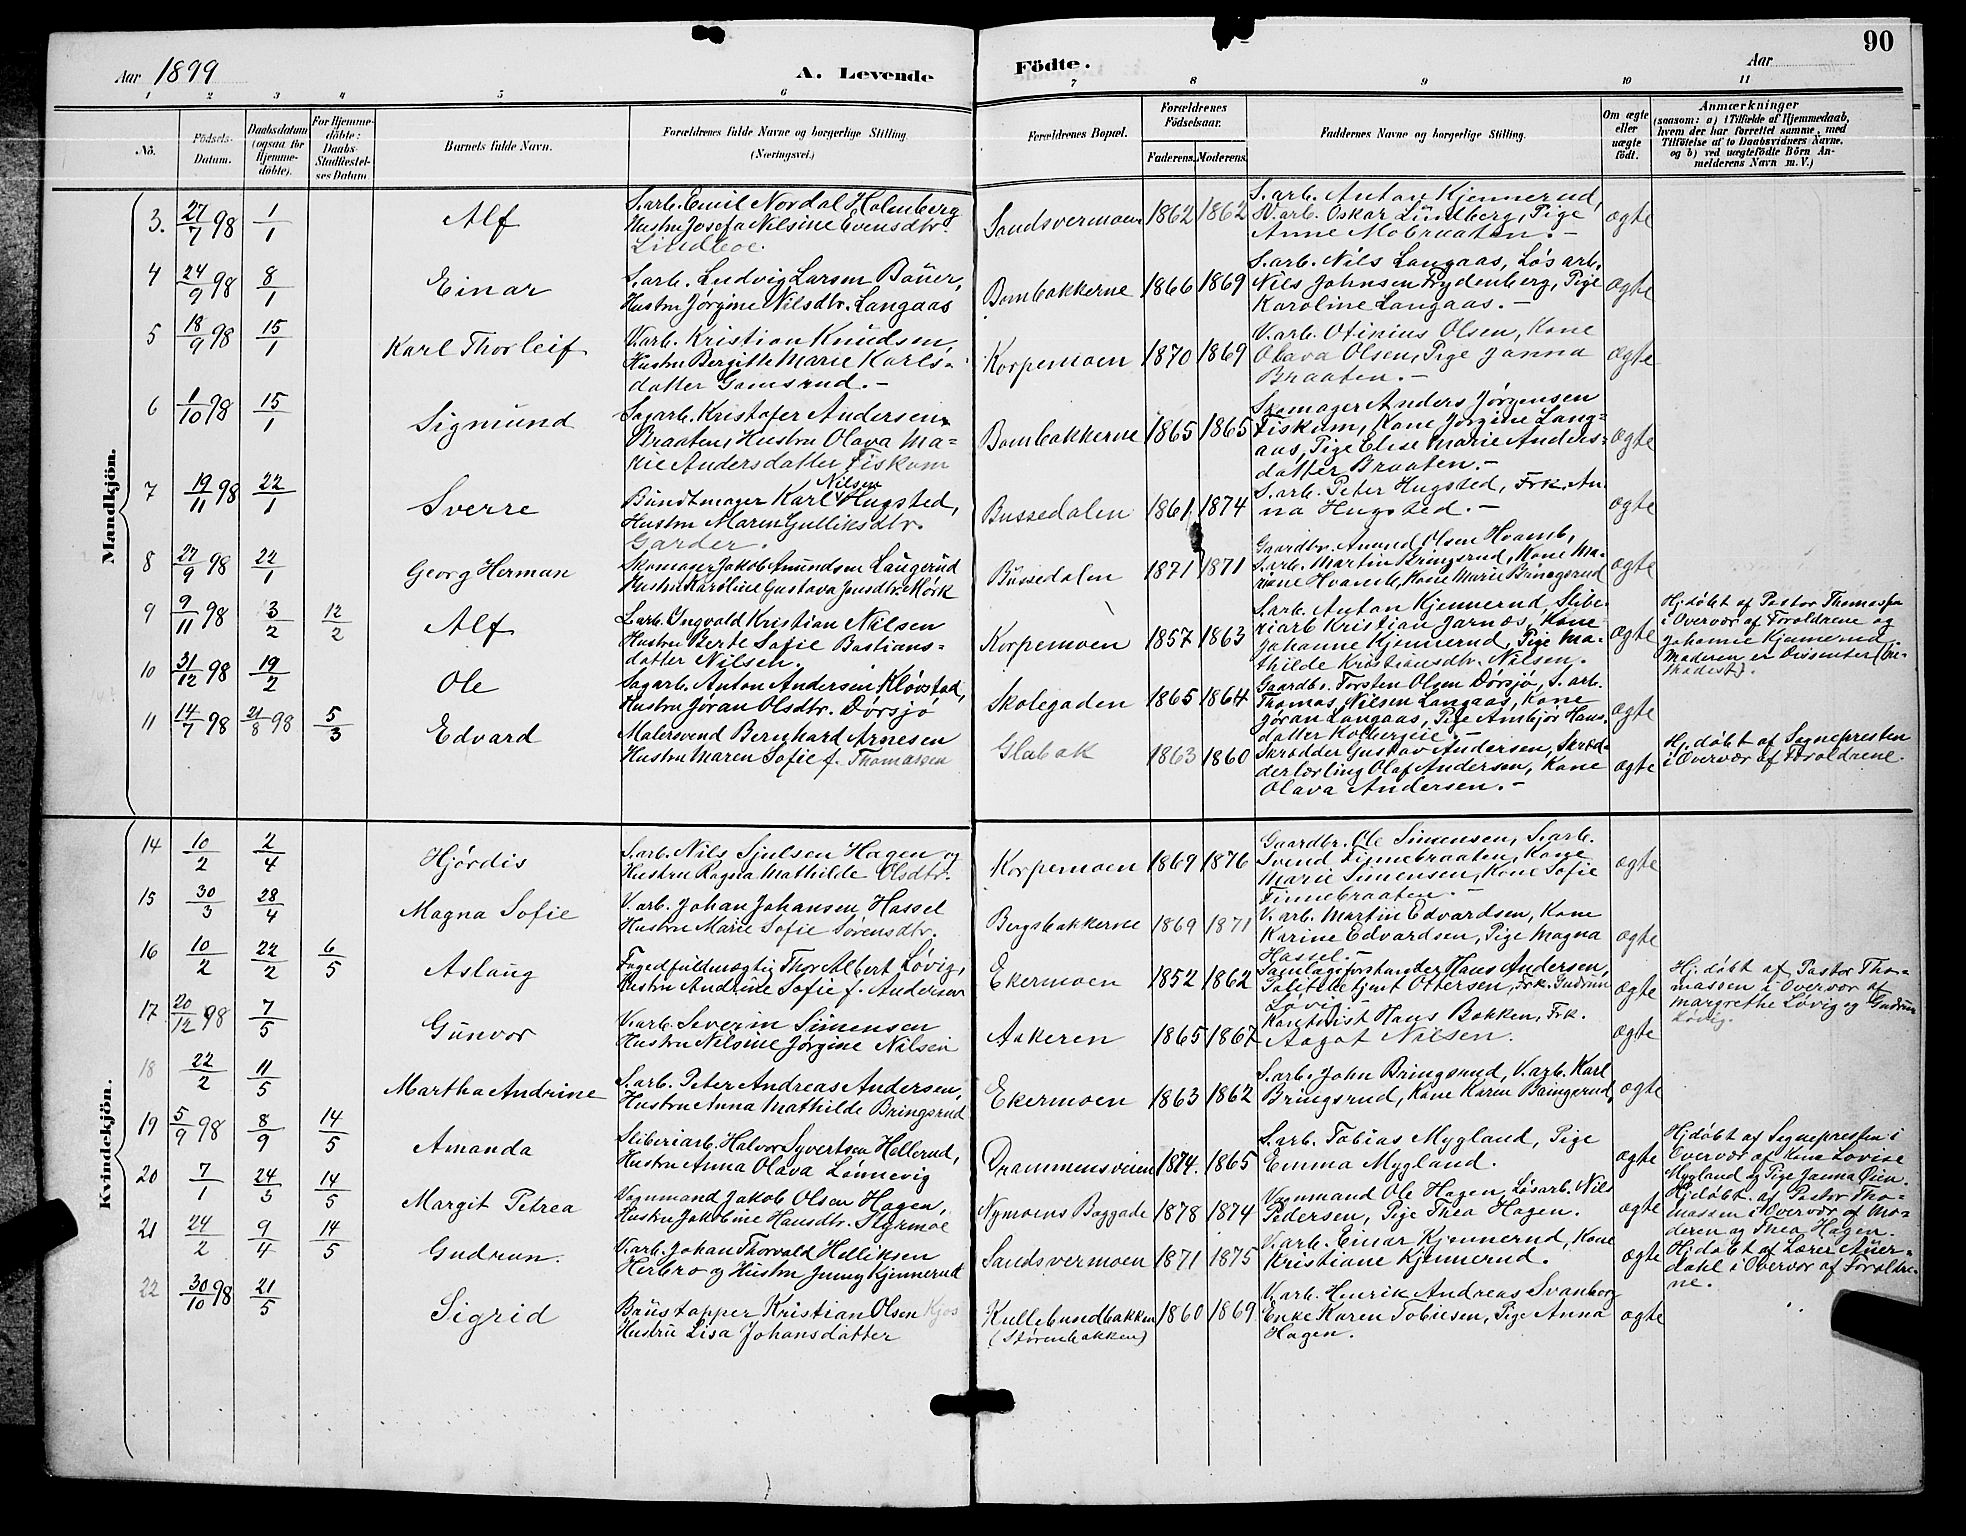 90
Aar 1899
A. Levende
Födte.
Aar
1 2 3 4 5 6 7 8 9 10 11
No.
Födsels-
Datum.
Daabsdatum
(ogsaa for
Hjemme-
döbte).
For Hjemme-
döbte:
Daabs-
Stadfæstel-
ses Datum
Barnets fulde Navn.
Forældrenes fulde Navne og borgerlige Stilling.
(Næringsvei.)
Forældrenes Bopæl.
Forældrenes
Födselsaar.
Faderens. Moderens.
Faddernes Navne og borgerlige Stilling.
Om ægte
eller
uægte
födt.
Anmærkninger
(saasom: a) i Tilfælde af Hjemmedaab,
hvem der har forrettet samme, med
Tilföielse af to Daabsvidners Navne.
og b) ved uægtefödte Börn An-
melderens Navn m. V.)
Mandkjön.
3. 27/7 98 1/1
Alf
S.arb. Emil Nordal Holmberg
Hustru Josefa Nilsine Evensdtr.
Lindboe.
Sandsvermoen 1862 1862
S.arb. Anton Kjennerud,
V.arb. Oskar Lundberg, Pige
Anne Mobraaten. -
ægte
4 24/9 98 8/1
Einar
S.arb. Ludvig Larsen Bauer,
Hustru Jörgine Nilsdtr. Langaas
Bombakkerne 1866 1869
S.arb. Nils Langaas, Løs arb.
Nils Johnsen Frydenberg, Pige
Karoline Langaas. -
ægte
5 18/9 98 15/1
Karl Thorleif
V.arb. Kristian Knudsen,
Hustru Bergitte Marie Karls-
datter Gamsrud. -
Korpemoen 1870 1869
V.arb. Otinius Olsen, Kone
Olava Olsen, Pige Janna
Braaten. -
ægte
6 1/10 98 15/1
Sigmund
Sagarb. Kristofer Andersen
Braaten, Hustru Olava Ma-
rie Andersdatter Fiskum
Bombakkerne 1865 1865
Skomager Anders Jørgensen
Fiskum, Kone Jørgine Lang-
aas, Pige Elise Marie Anders-
datter Braaten. -
ægte
7 19/11 98 22/1
Sverre
Bundtmager Karl Nilsen Hugsted,
Hustru Maren Gulliksdtr.
Garder.
Bussedalen 1861 1874
S.arb. Peter Hugsted, Frk. An-
na Hugsted. -
ægte
8 27/9 98 22/1
Georg Herman
Skomager Jakob Amundsen Laugerud
Hustru Karoline Gustava Jensdtr. Mørk
Bussedalen 1871 1871
Gaardbr. Amund Olsen Hvamb,
S.arb. Martin Bringsrud, Kone Ma-
riane Hvamb, Kone Marie Bringsrud
ægte
9 9/11 98 3/2 12/2
Alf
S.arb. Ingvald Kristian Nilsen
Hustru Berte Sofie Bastians-
datter Nilsen.
Korpemoen 1857 1863
S.arb. Anton Kjennerud, Slibe-
riarb Kristian Jarnæs, Kone
Johanne Kjennerud, Pige Ma-
thilde Kristiansdtr. Nilsen.
ægte
Hj. døbt af Pastor Thomassen
i Overvær af Forældrene og
Johanne Kjennerud.
Moderen er Dissenter
10 31/12 98 19/2
Ole
Sagarb. Anton Andersen Kløvstad,
Hustru Jøran Olsdtr. Dørsjø
Skolegaden 1865 1864
Gaardbr. Torsten Olsen Dørsjø, S. arb.
Thomas Nilsen Langaas, Kone
Jøran Langaas, Pige Ambjør Hans-
datter Kolbergeie. -
ægte
11 14/7 98 21/8 98 5/3
Edvard
Malersvend Bernhard Arnesen
Hustru Maren Sofie f. Thomassen
Glabak 1863 1860
Skrædder Gustav Andersen, Skræd-
derlærling Olaf Andersen, Kone
Olava Andersen. -
ægte
Hj. døbt af Sognepresten
i Overvær af Forældrene.
Kvindekjön.
14 10/2 2/4
Hjørdis
S.arb. Nils Sjulsen Hagen og
Hustru Ragna Mathilde Olsdtr.
Korpemoen 1869 1876
Gaardbr. Ole Simensen, S.arb.
Svend Finnebraaten, Kone
Marie Simensen, Kone Sofie
Finnebraaten. -
ægte
15 30/3 28/4
Magna Sofie
V.arb. Johan Johansen Hassel
Hustru Marie Sofie Sørensdtr.
Bergsbakkerne 1869 1871
V.arb. Martin Edvardsen, Kone
Karine Edvardsen, Pige Magna
Hassel. -
ægte
16 10/2 22/2 6/5
Aslaug
Fogedfuldmægtig Thor Albert Løvig,
Hustru Andrine Sofie f. Andersen
Ekermoen 1852 1862
Samlagsforstander Hans Andersen,
Politibetjent Ottersen, Frk. Gudrun
Løvig.
ægte
Hj. døbt af Pastor Tho-
massen i Overvær af
Margrethe Løvig og Gudrun
Løvig.
17 20/12 98 7/5
Gunvor
V.arb. Severin Simensen
Hustru Nilsine Jørgine Nilsen
Aakeren 1865 1867
Kontorist Hans Bakken, Frk.
Aagot Nilsen.
ægte
18 22/2 11/5
Martha Andrine
S.arb. Peter Andreas Andersen,
Hustru Anna Mathilde Bringsrud
Ekermoen 1863 1862
S.arb. John Bringsrud, V.arb. Karl
Bringsrud, Kone Karen Bringsrud,
ægte
19 5/9 98 8/9 14/5
Amanda
Sliberiarb. Halvor Syvertsen Hellerud,
Hustru Anna Olava Lønnevig
Drammensveien 1874. 1865
S.arb. Tobias Mygland, Pige
Emma Mygland.
ægte
Hj døbt af Sognepresten i
Overvær af Kone Lovise
Mygland og Pige Janna Øien.
20 7/1 24/3 14/5
Margit Petrea
Vognmand Jakob Olsen Hagen,
Hustru Jakobine Hansdtr. Styrmoe
Nymoens Baggade 1878 1874
Vognmand Ole Hagen, Løsarb. Nils
Pedersen, Pige Thea Hagen.
ægte
Hj døbt af Pastor Tho-
massen i Overvær af Mo-
deren og Thea Hagen.
21 24/2 9/4 14/5
Gudrun.
V.arb. Johan Thorvald Helliksen
Herbro og Hustru Jenny Kjennerud
Sandsvermoen 1871 1875
V.arb. Einar Kjennerud, Kone
Kristiane Kjennerud.
ægte
Hj. døbt af Lærer Auer-
dahl i Overvær af Forældre-
ne.
22 30/10 98 21/5
Sigrid
Kristian Olsen Kjos
Hustru Lisa Johansdatter
Kullebundbakken
(Størenbakken)
1860 1869
V.arb. Henrik Andreas Svanborg
Enke Karen Tobiesen, Pige Anna
Hagen.
ægte